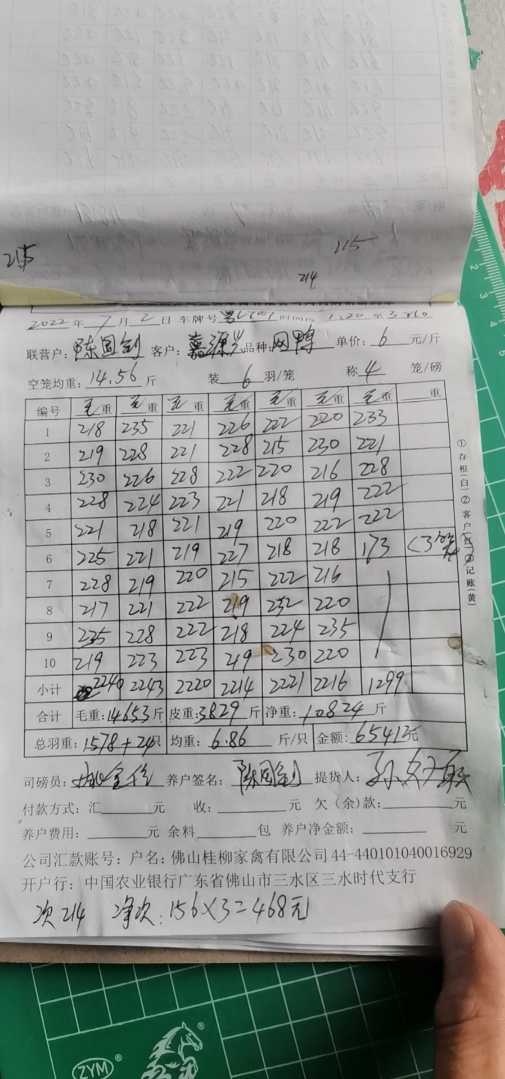 215
215
214
2022年7月2日 车牌号
联营户：陈国剑 客户：嘉源 品种：网鸭 单价：6 元/斤
空笼均重：14.56 斤 装 6 羽/笼 称 4 笼/磅
编号 毛重 毛重 毛重 毛重 毛重 毛重 毛重 重
1 218 235 221 226 222 220 233
2 219 228 221 228 215 230 221
3 230 226 228 222 220 216 228
4 228 224 223 221 218 219 222
5 221 218 221 219 220 222 222
6 225 221 219 227 218 218 173 (3笼
7 228 219 220 215 222 216
8 217 221 222 219 232 220
9 235 228 222 218 224 235
10 219 223 223 219 230 220
小计 2240 2243 2220 2214 2221 2216 1299
合计 毛重：14653 斤 皮重：3829 斤 净重：10824 斤
总羽重：1578+24只 均重：6.86 斤/只 金额：65412元
①存根(白)②客户(红)③记账(黄)
司磅员： 养户签名：陈国剑 提货人：孙
付款方式：汇 元 收： 元 欠(余)款： 元
养户费用： 元 余料 包 养户净金额： 元
公司汇款账号：户名：佛山桂柳家禽有限公司 44-440101040016929
开户行：中国农业银行广东省佛山市三水区三水时代支行
次214 净次：156×3=468元
ZYM